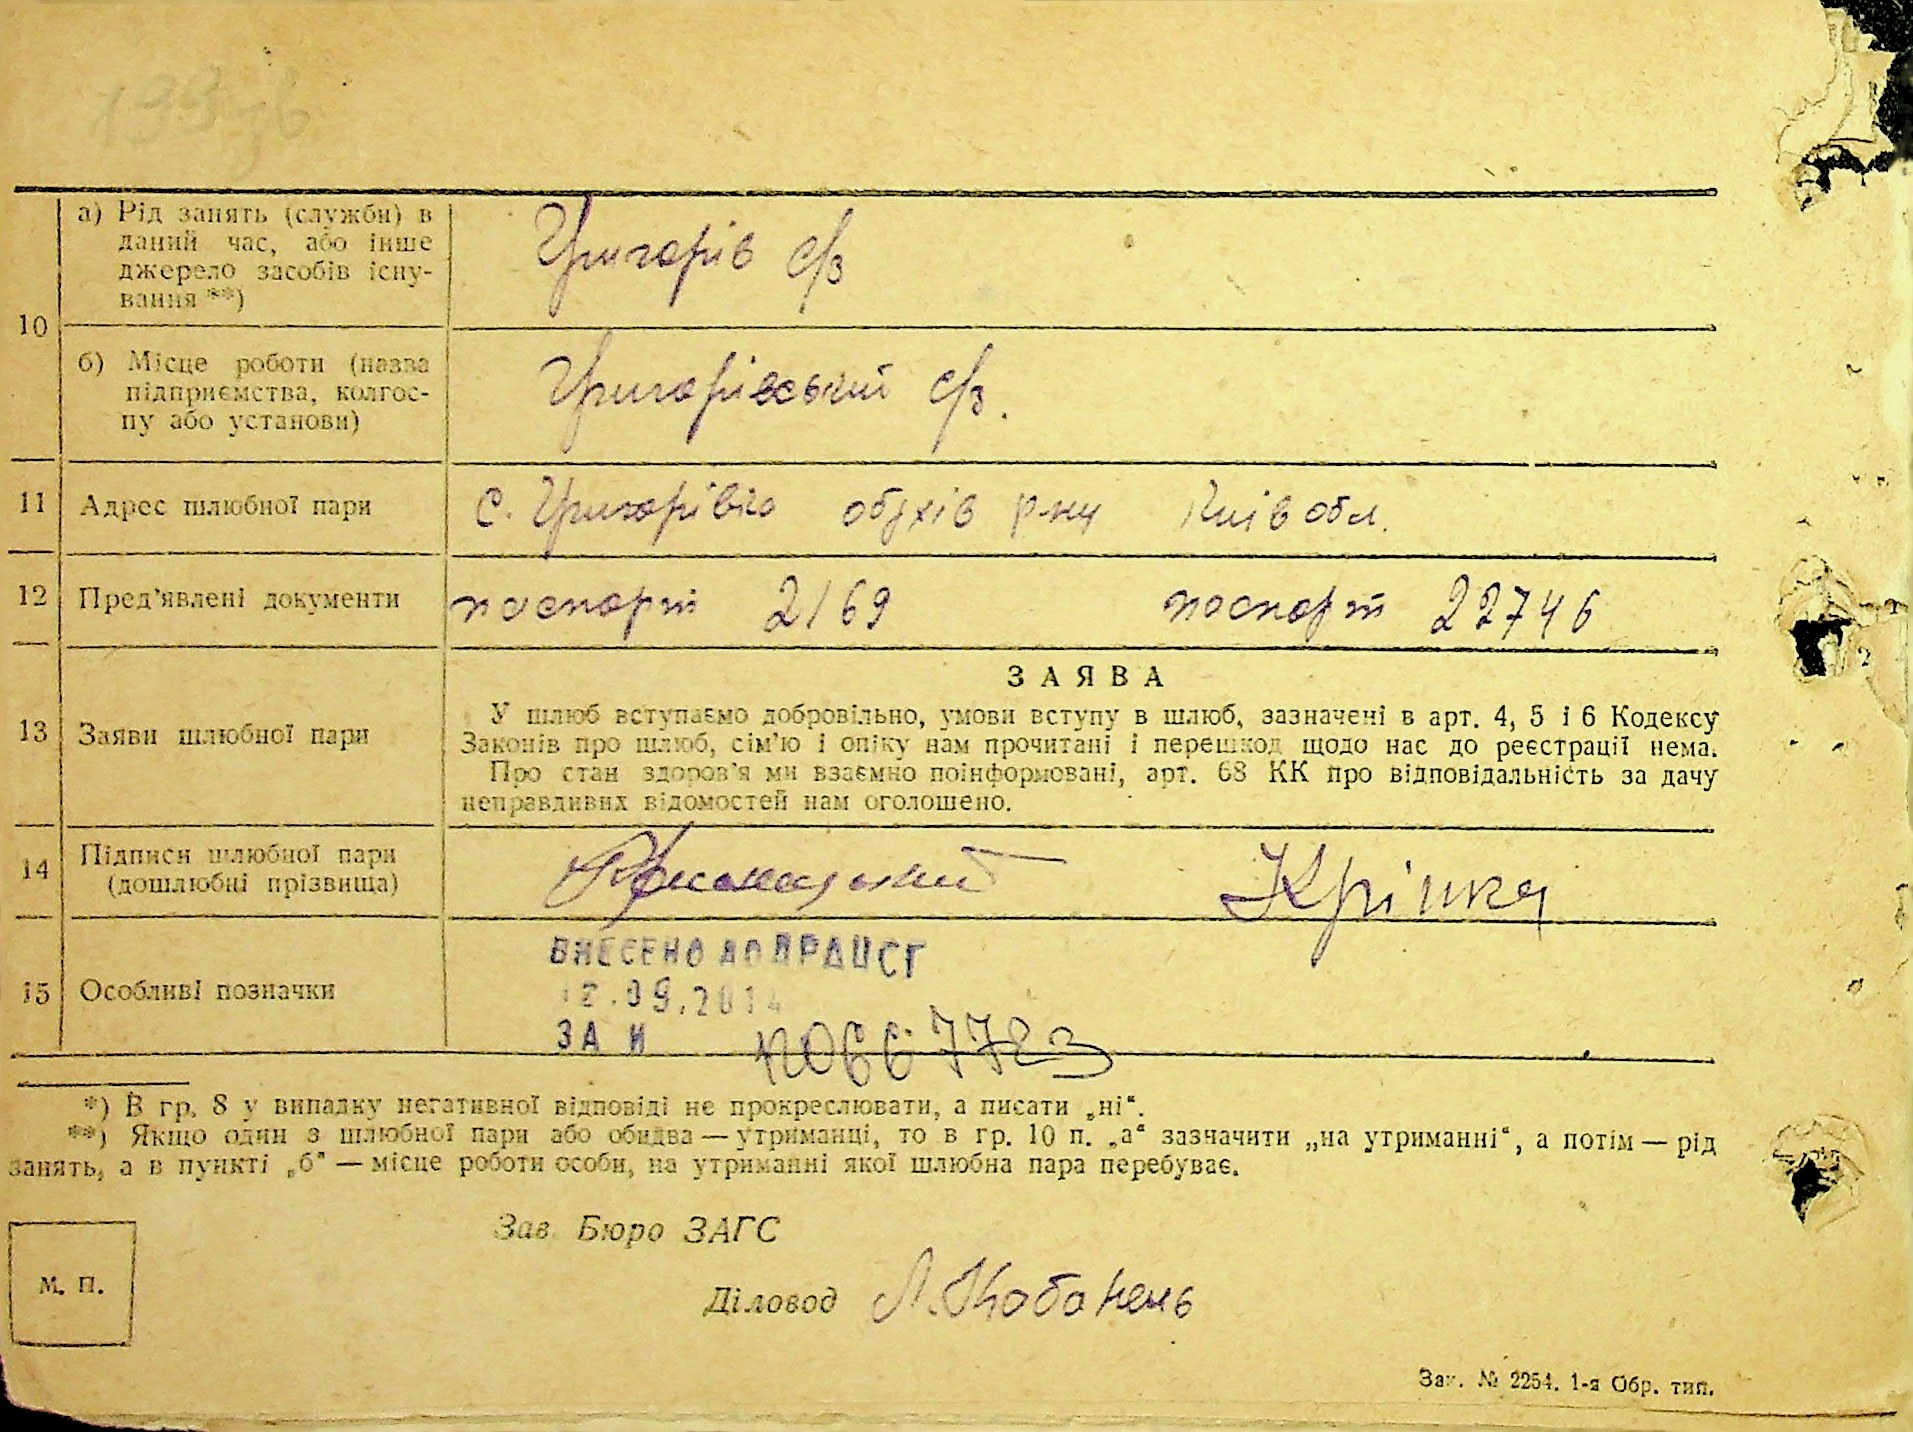 10
а) Рід занять (служби) в
даний час, або інше
джерело засобів існу-
вання **)
Григорів с/з
б) Місце роботи (назва
підприємства, колгос-
пу або установи)
Григорівський с/з.
11 Адрес шлюбної пари с. Григорівка обухів р-ну Київ обл.
12 Пред’явлені документи паспорт 2169 паспорт 22746
ЗАЯВА
13 Заяви шлюбної пари
У шлюб вступаємо добровільно, умови вступу в шлюб, зазначені в арт. 4, 5 і 6 Кодексу
Законів про шлюб, сім’ю і опіку нам прочитані і перешкод щодо нас до реєстрації нема.
Про стан здоров’я ми взаємно поінформовані, арт. 68 КК про відповідальність за дачу
неправдивих відомостей нам оголошено.
14 Підписи шлюбної пари
(дошлюбні прізвища)
Кріпка
15 Особливі позначки
ВНЕСЕНО ДО ДРАЦСГ
12.09.2014
ЗА N
№0667723
*) В гр. 8 у випадку негативної відповіді не прокреслювати, а писати „ні“.
**) Якщо один з шлюбної пари або обидва — утриманці, то в гр. 10 п. „а“ зазначити „на утриманні“, а потім — рід
занять, а в пункті „б“ — місце роботи особи, на утриманні якої шлюбна пара перебуває.
Зав. Бюро ЗАГС
М. П.
Діловод Л. Кобанень
Зак. № 2254. 1-я Обр. тип.